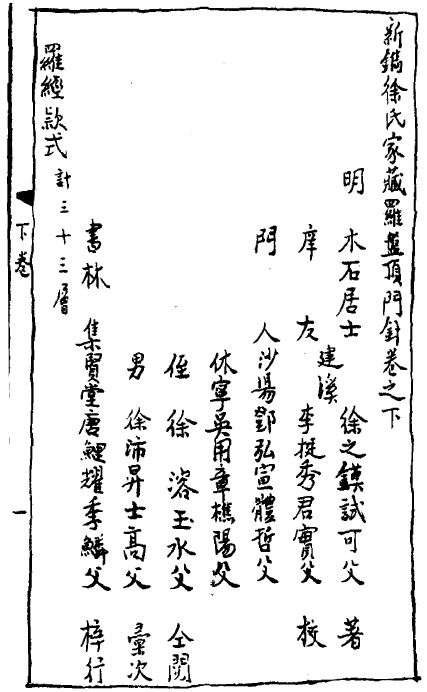 新鐫徐氏家藏羅盤頂門針卷之下
明 木石居士 徐之鏌試可父 著
庠友 建溪 李挺秀君實父 校
門人 沙陽鄧弘宣體哲父
休寧吳用章樵陽父
侄 徐溶玉水父 仝閱
男 徐沛昇士高父 彙次
書林 集賢堂唐鯉耀季鱗父 梓行
羅經款式 計三十三層
下卷
一